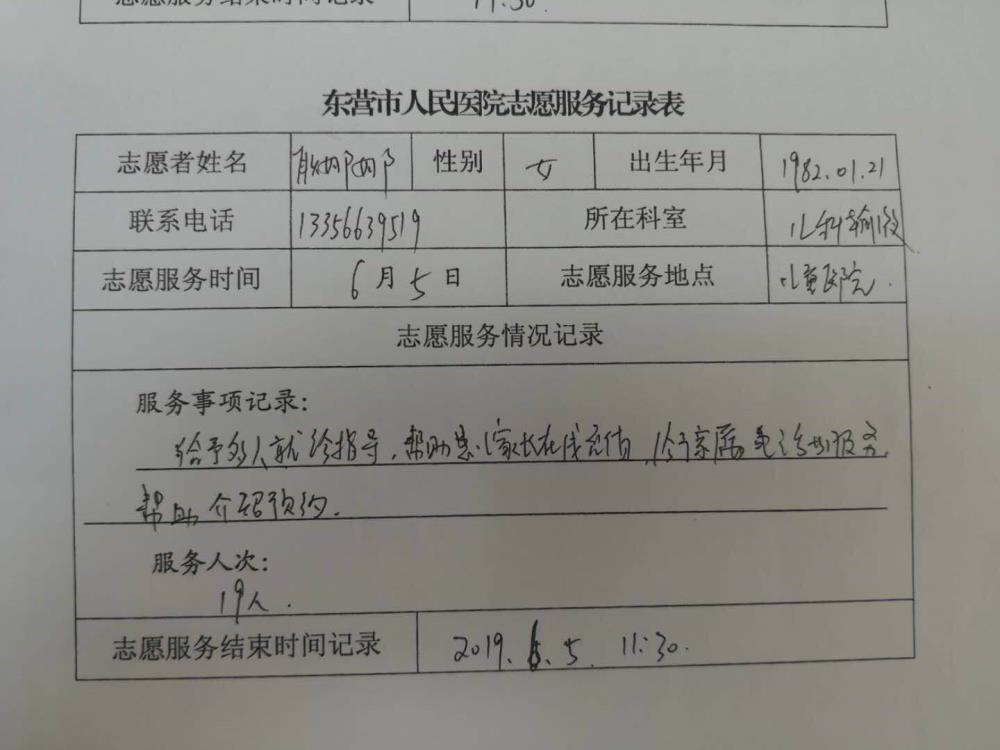 志愿服务结束时间记录 11:30.
东营市人民医院志愿服务记录表
志愿者姓名 性别 女 出生年月 1982.01.21
联系电话 13356639519 所在科室 儿科输液
志愿服务时间 6月5日 志愿服务地点 儿童医院.
志愿服务情况记录
服务事项记录:
给予病人就诊指导,帮助患儿家长在线充值,给予家属
帮助介绍预约.
服务人次:
19人.
志愿服务结束时间记录 2019.6.5. 11:30.